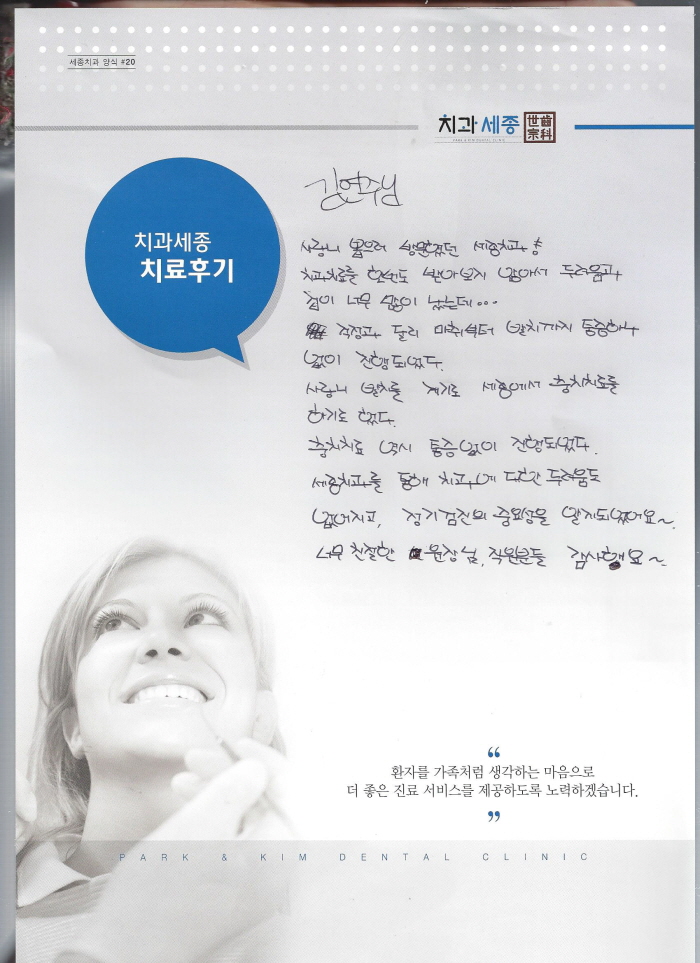 세종치과 양식 #20
치과세종 世宗齒科
PARK & KIM DENTAL CLINIC
치과세종
치료후기
김연수님
사랑니 뽑으러 방문했던 세종치과!
치과치료를 한번도 받아보지 않아서 두려움과
겁이 너무 많이 났는데...
걱정과 달리 마취부터 발치까지 통증하나
없이 진행되었다.
사랑니 발치를 계기로 세종에서 충치치료를
하기로 했다.
충치치료 역시 통증없이 진행되었다.
세종치과를 통해 치과에 대한 두려움도
없어지고, 정기검진의 중요성을 알게되었어요~
너무 친절한 원장님, 직원분들 감사해요~
“
환자를 가족처럼 생각하는 마음으로
더 좋은 진료 서비스를 제공하도록 노력하겠습니다.
”
PARK & KIM DENTAL CLINIC